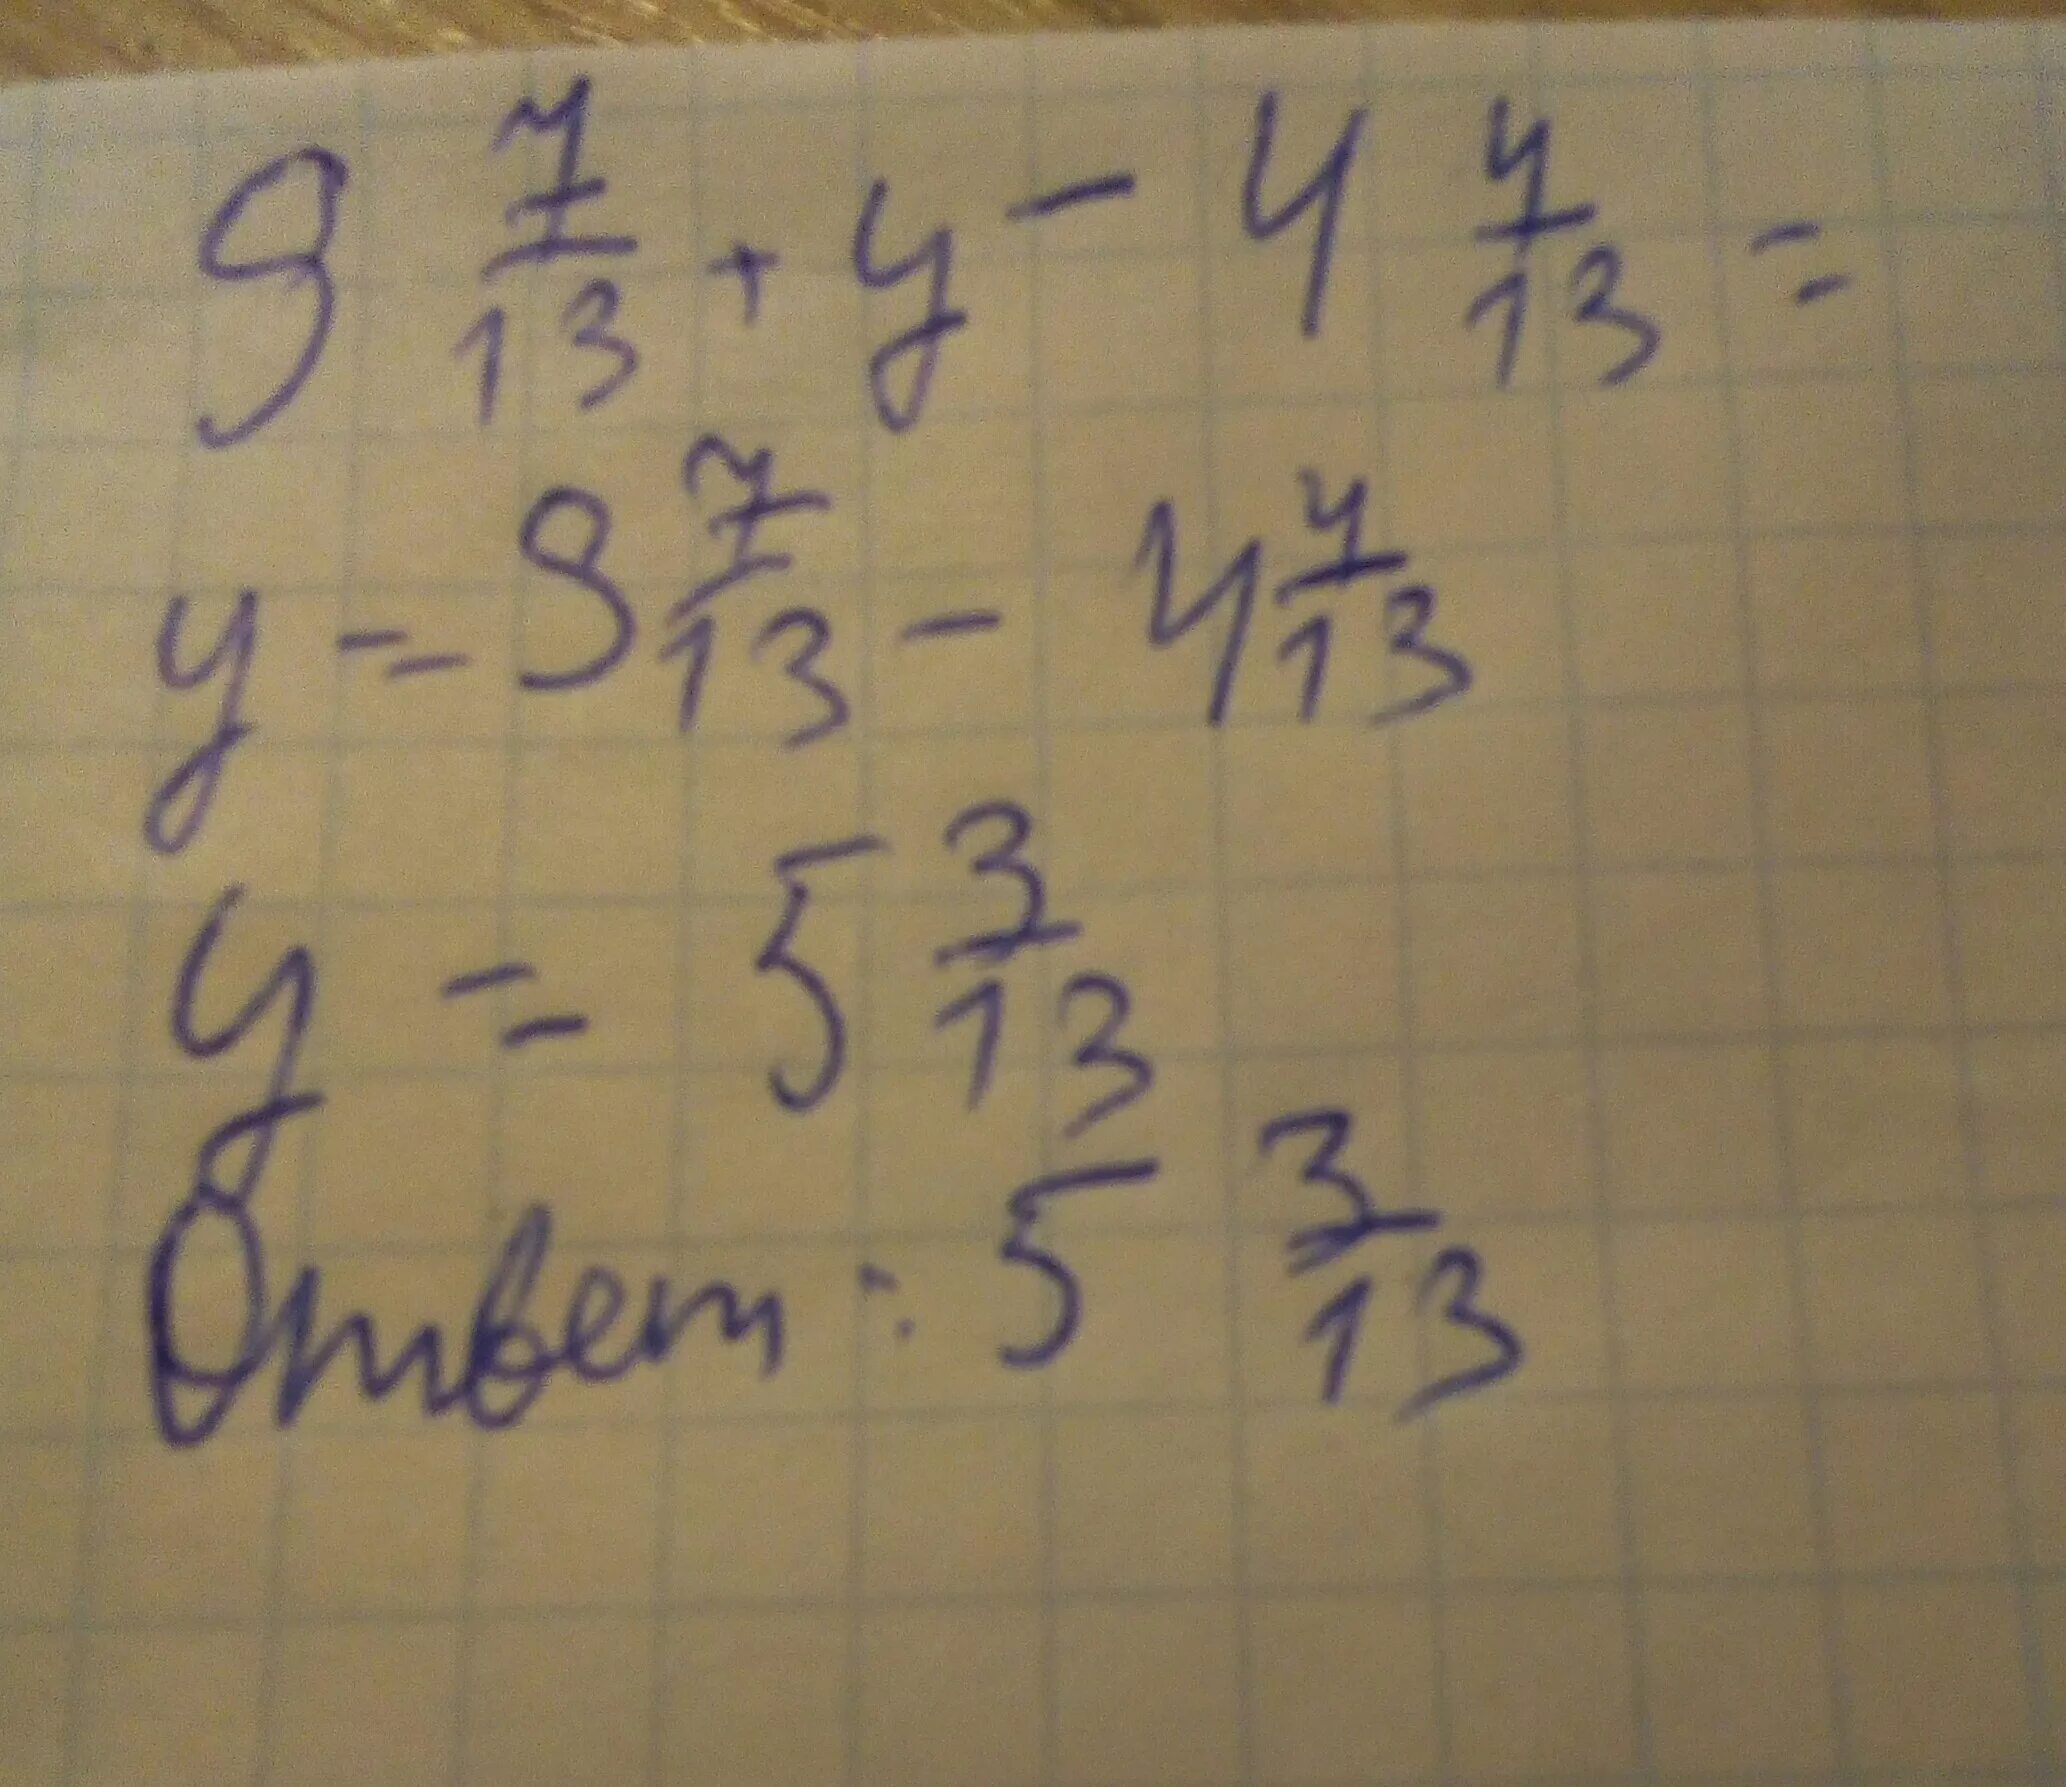 9 7/13 + y - 4 4/13 =
y = 9 7/13 - 4 4/13
y = 5 3/13
Ответ: 5 3/13